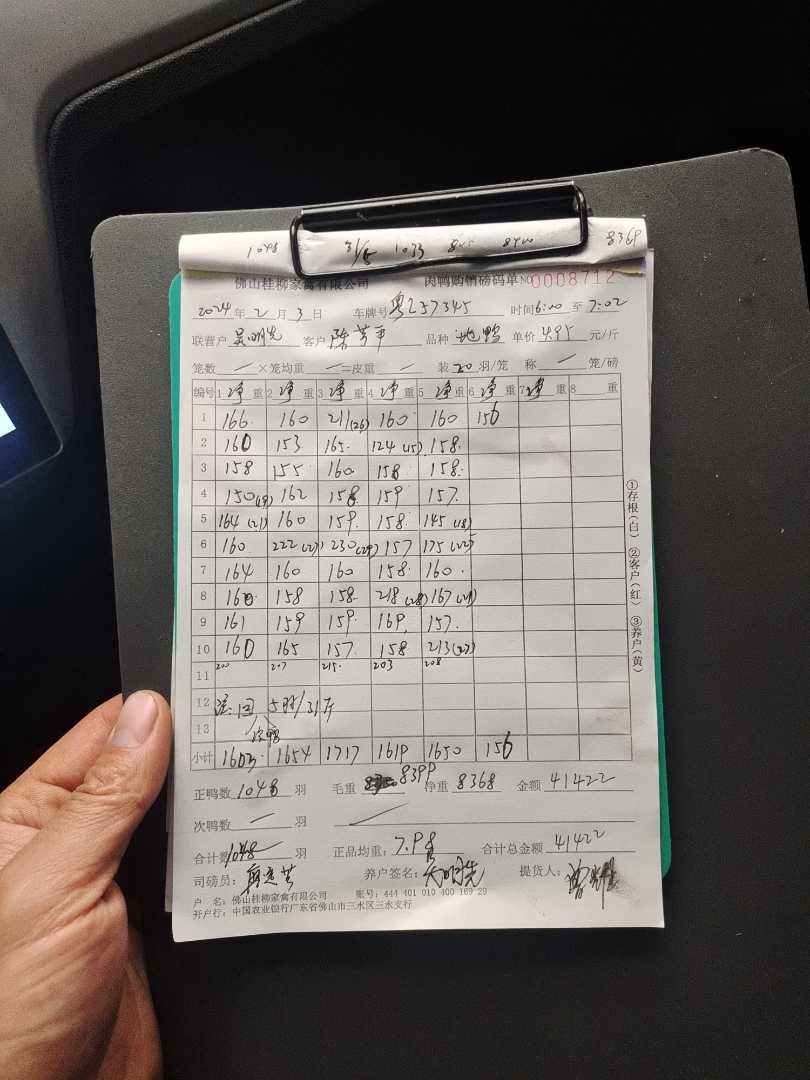 1048 31/5 1033 8369
佛山桂柳家禽有限公司 肉鸭购销磅码单 NO 0008712
2024 年 2 月 3 日 车牌号 粤257345 时间 6:00 至 7:02
联营户 吴明先 客户 陈芳平 品种 地鸭 单价 4.95 元/斤
笼数 — ×笼均重 — =皮重 — 装 20 羽/笼 称 — 笼/磅
编号 1 净 重 2 净 重 3 净 重 4 净 重 5 净 重 6 净 重 7 净 重 8 重
1 166 160 211(26) 160 160 156
2 160 153 165 124(15) 158
3 158 155 160 158 158
4 150(19) 162 158 159 157
5 164(21) 160 159 158 145(18)
6 160 222(27) 230(29) 157 175(22)
7 164 160 160 158 160
8 160 158 158 218(28) 167(21)
9 161 159 159 169 157
10 160 165 157 158 213(27)
11 200 207 215 203 208
12 5羽/31斤
13 次鸭
小计 1603 1654 1717 1619 1650 156
正鸭数 1048 羽 毛重 8399 净重 8368 金额 41422
次鸭数 — 羽
合计数 1048 羽 正品均重: 7.98 合计总金额 41422
司磅员: 养户签名: 吴明先 提货人:
户 名: 佛山桂柳家禽有限公司 账号: 444 401 010 400 169 29
开户行: 中国农业银行广东省佛山市三水区三水支行
①存根(白) ②客户(红) ③养户(黄)